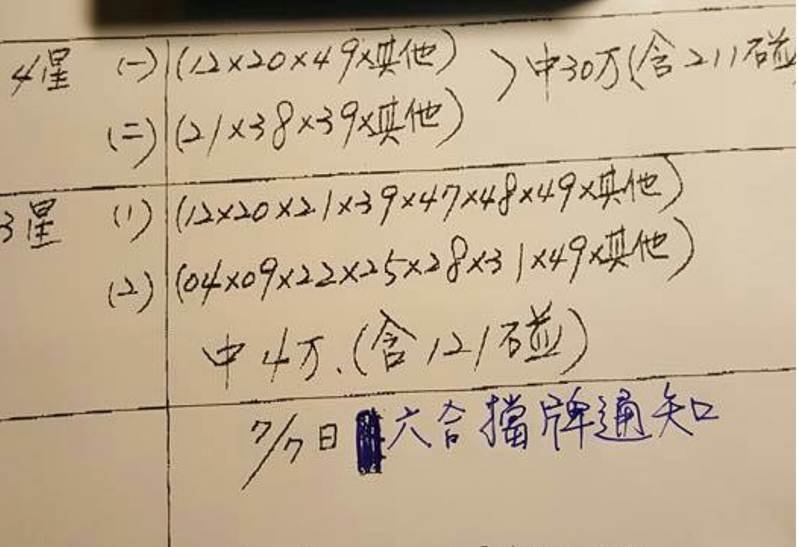 4星 (一) (12×20×49×其他) 〉中30万(含211碰
(二) (21×38×39×其他)
3星 (1) (12×20×21×39×47×48×49×其他)
(2) (04×09×22×25×28×31×49×其他)
中4万.(含121碰)
7/7日 六合擋牌通知